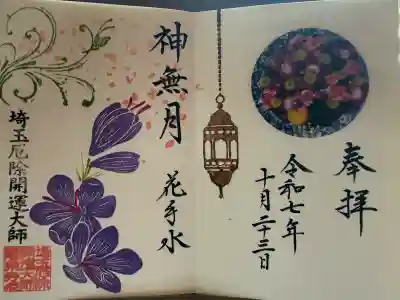 奉拝
令和七年
十月二十三日
神無月
花手水
埼玉厄除開運大師